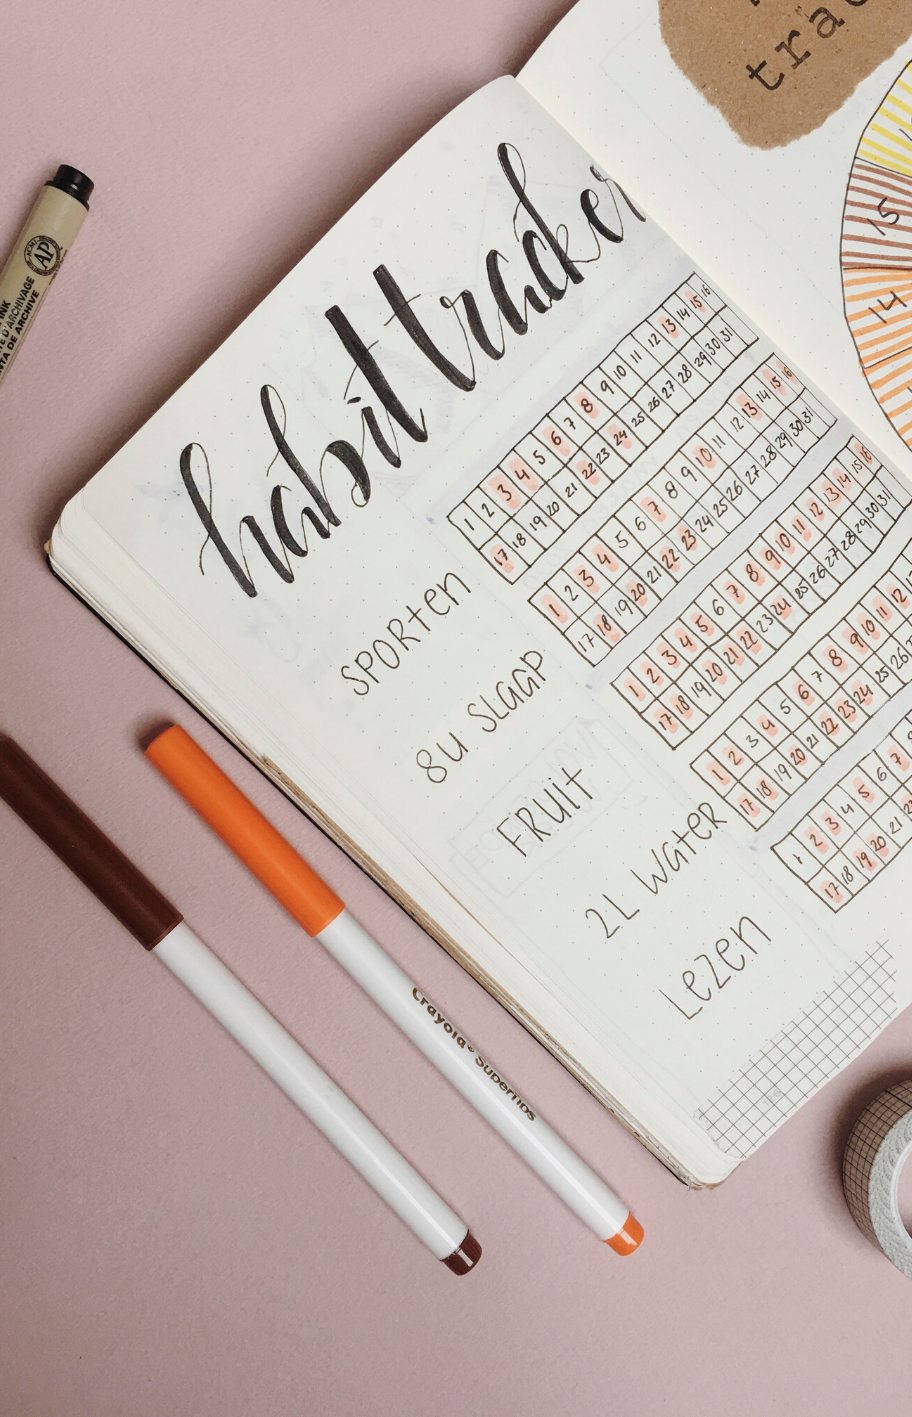 trac
15
14
habit tracker
SPORTEN
1 2 3 4 5 6 7 8 9 10 11 12 13 14 15 16
17 18 19 20 21 22 23 24 25 26 27 28 29 30 31
8u SLAAP
1 2 3 4 5 6 7 8 9 10 11 12 13 14 15 16
17 18 19 20 21 22 23 24 25 26 27 28 29 30 31
FRUIT
1 2 3 4 5 6 7 8 9 10 11 12 13 14 15 16
17 18 19 20 21 22 23 24 25 26 27 28 29 30 31
2L WATER
1 2 3 4 5 6 7 8 9 10 11 12
17 18 19 20 21 22 23 24 25 26
LEZEN
1 2 3 4 5 6 7
17 18 19 20 21
AP
INK
D'ARCHIVAGE
TA DE ARCHIVE
Crayola® SuperTips